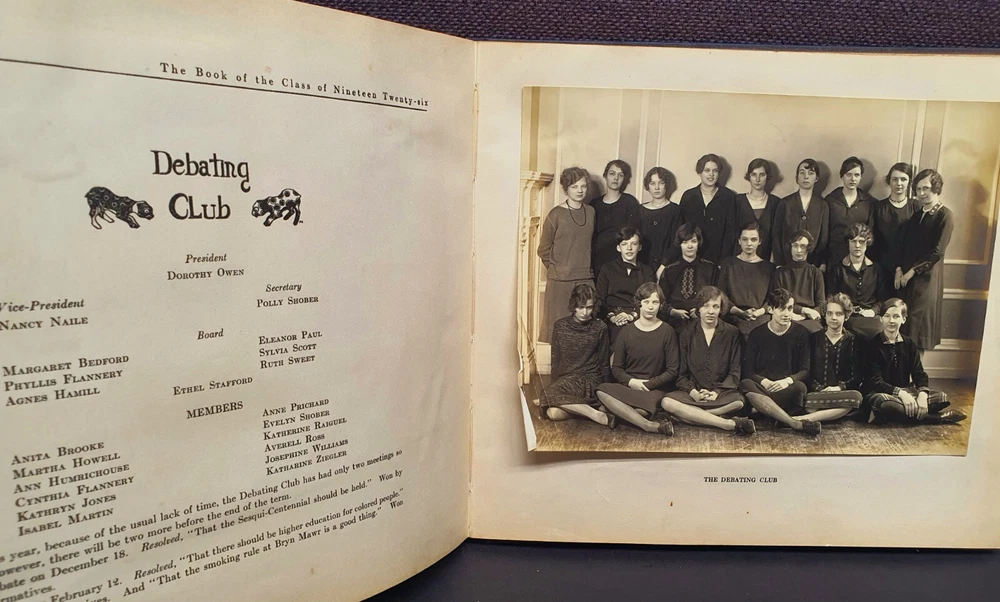 The Book of the Class of Nineteen Twenty-six
Debating
Club
President
DOROTHY OWEN
Vice-President
NANCY NAILE
Secretary
POLLY SHOBER
Board
MARGARET BEDFORD
PHYLLIS FLANNERY
AGNES HAMILL
ELEANOR PAUL
SYLVIA SCOTT
RUTH SWEET
ETHEL STAFFORD
MEMBERS
ANITA BROOKE
MARTHA HOWELL
ANN HUMRICHOUSE
CYNTHIA FLANNERY
KATHRYN JONES
ISABEL MARTIN
ANNE PRICHARD
EVELYN SHOBER
KATHERINE RAIGUEL
AVERELL ROSS
JOSEPHINE WILLIAMS
KATHARINE ZIEGLER
year, because of the usual lack of time, the Debating Club has had only two meetings so
however, there will be two more before the end of the term.
on December 18. Resolved, "That the Sesqui-Centennial should be held." Won by
February 12. Resolved, "That there should be higher education for colored people."
And "That the smoking rule at Bryn Mawr is a good thing." Won
THE DEBATING CLUB